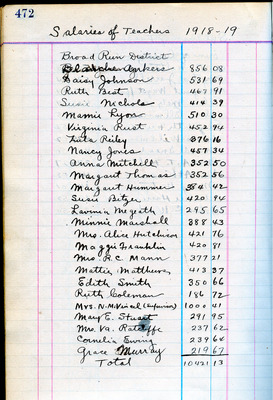 472
Salaries of Teachers 1918-19
Broad Run District
Blanche Yonkers 856 08
Daisy Johnson 531 69
Ruth Best 467 91
Susie Nichols 414 39
Mamie Lyon 510 30
Virginia Rust 452 94
Luta Reiley 376 16
Nancy Jones 457 34
Anna Mitchell 352 50
Margaret Thomas 352 56
Margaret Hummer 354 42
Susie Bitzer 420 94
Lavinia Megeath 295 65
Minnie Marshall 388 43
Mrs. Alice Hutchison 421 76
Maggie Franklin 420 81
Mrs. R.C. Mann 377 21
Mattie Matthews 413 37
Edith Smith 350 66
Ruth Coleman 186 72
Mrs. N. (Supervisor) 1000 41
Mary E. Stuart 291 95
Mrs. Va. Ratcliffe 237 62
Cornelia Ewing 239 64
Grace Murray 219 67
Total 10421 13